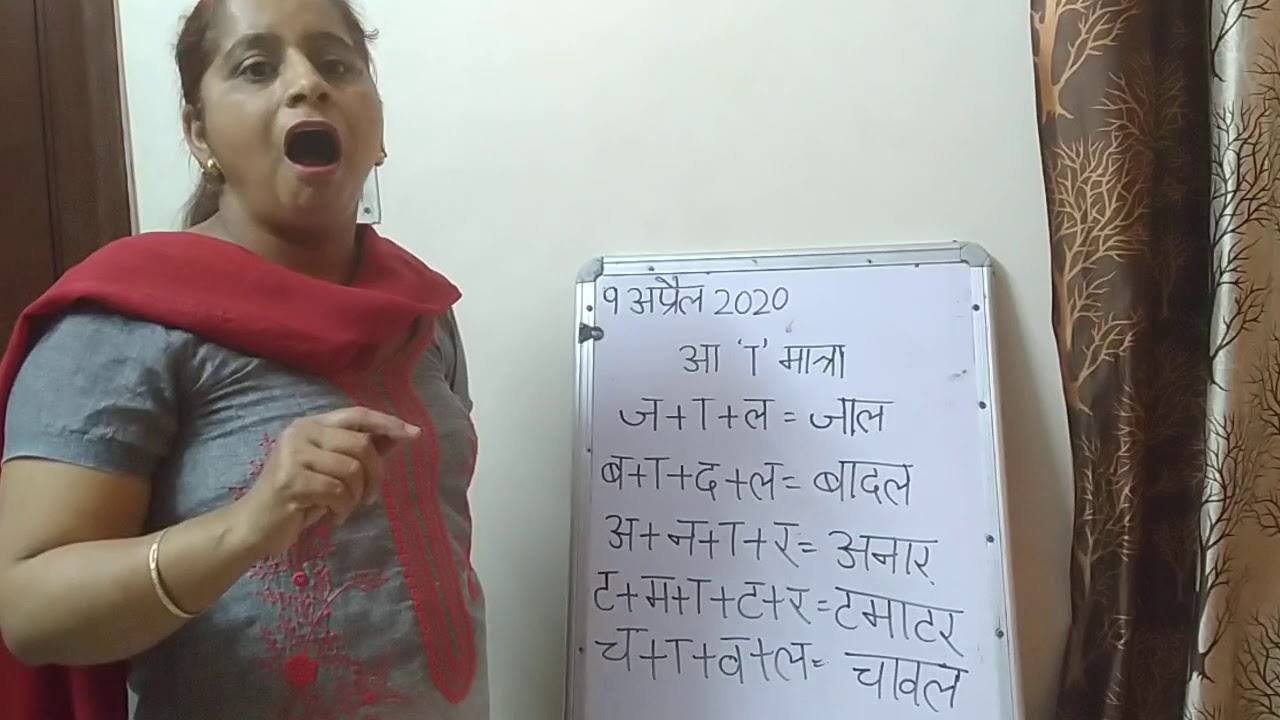 १ अप्रैल 2020
आ 'ा' मात्रा
ज+ा+ल = जाल
ब+ा+द+ल = बादल
अ+न+ा+र = अनार
ट+म+ा+ट+र = टमाटर
च+ा+व+ल = चावल